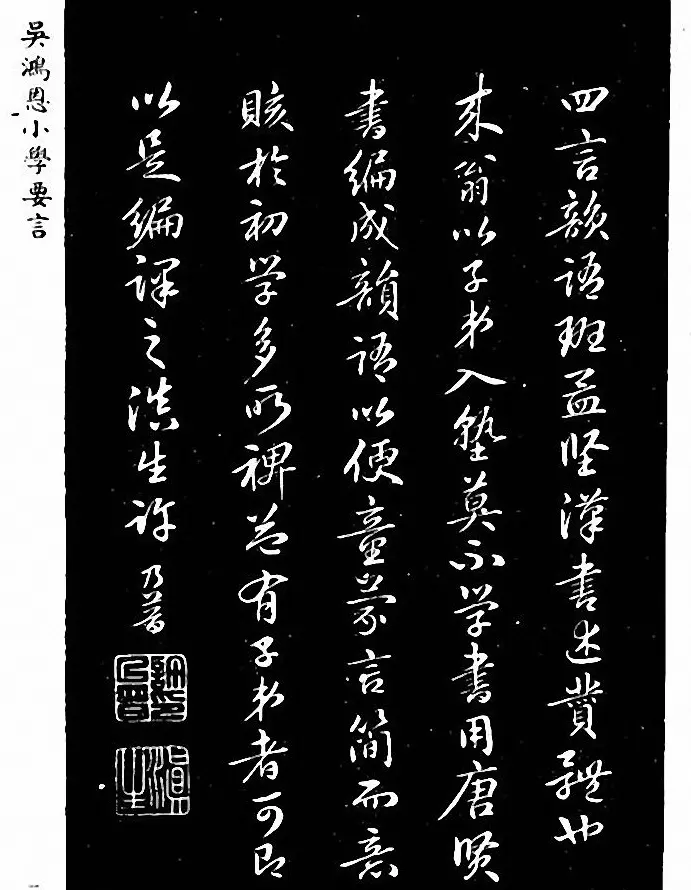 四言韻語班孟坚漢書述贊體也
来翁以子弟入塾莫不学書用唐贤
書編成韻語以便童蒙言简而意
賅於初学多所裨益有子弟者可即
以是編課之滇生许乃普
許印乃普
滇生
吳鴻恩小學要言